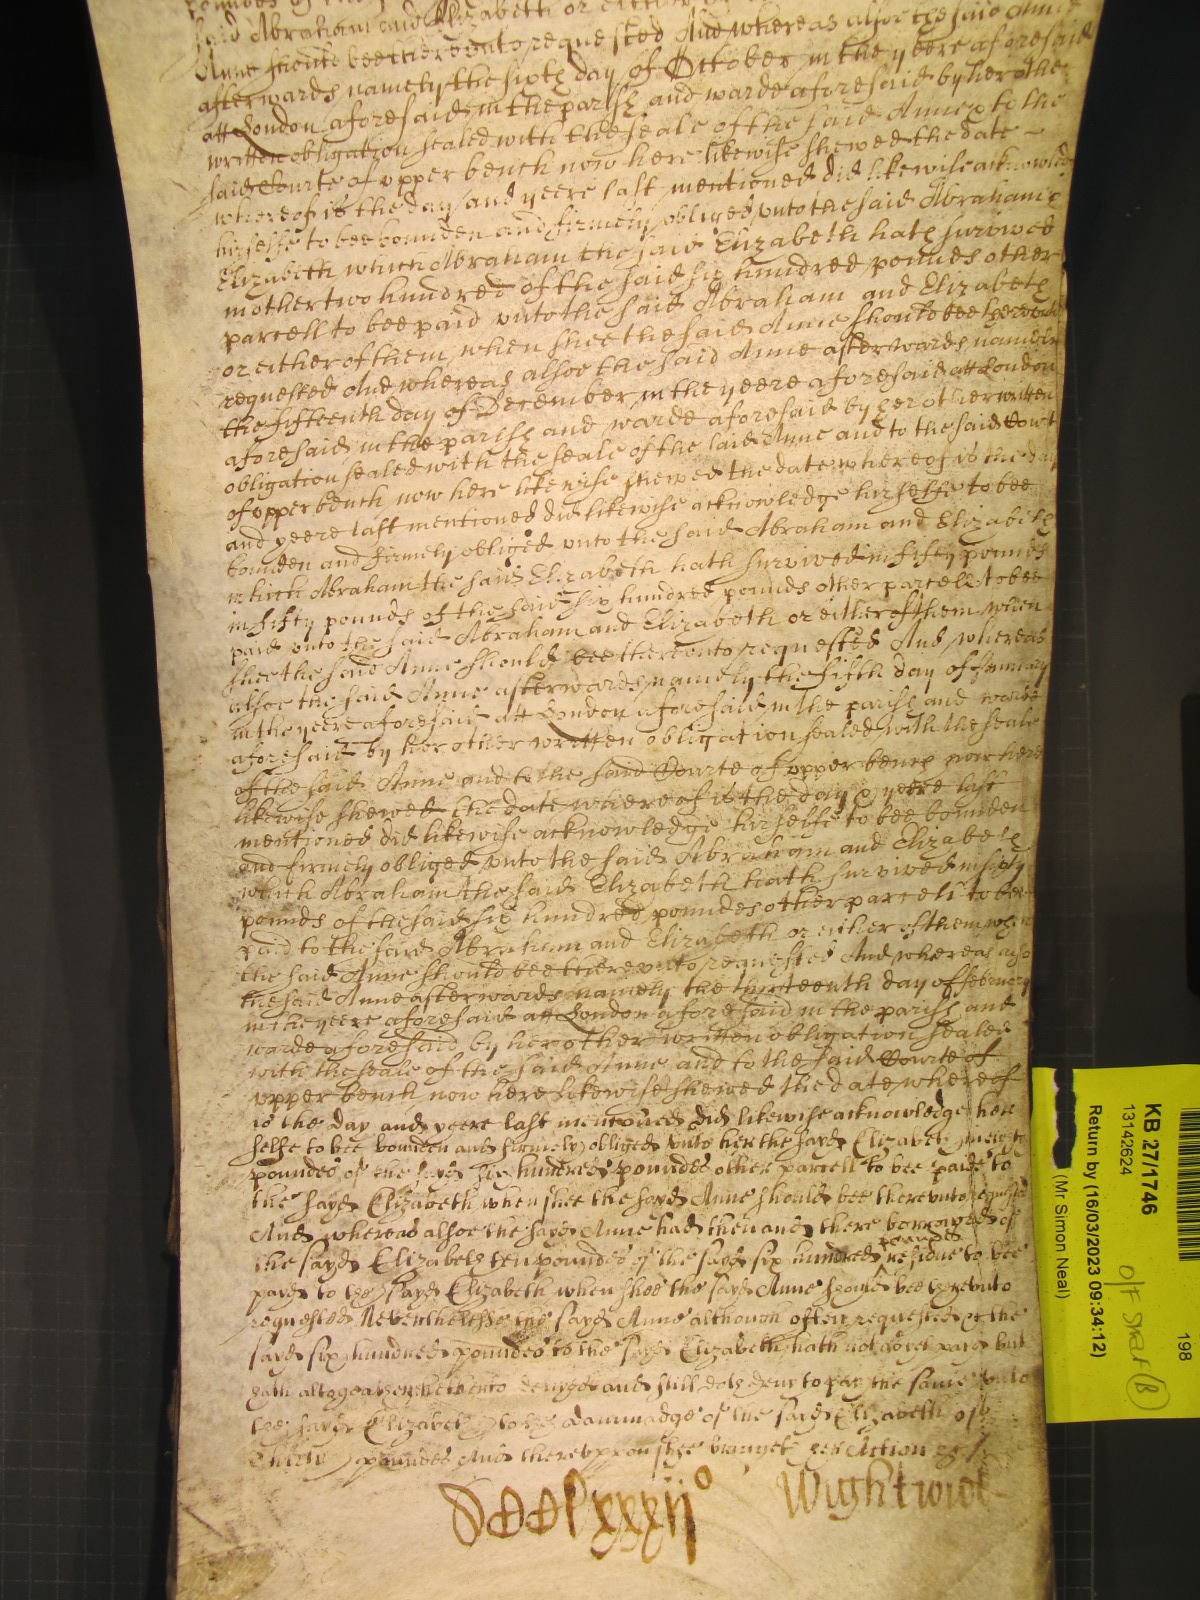 said Abraham and Elizabeth or either
Anne should bee thereunto requested And whereas alsoe the said Anne
afterwards namely the sixth day of October in the yeere aforesaid
att London aforesaid in the parish and warde aforesaid by her other
written obligation sealed with the seale of the said Anne & to the
said Courte of upper bench now here likewise shewed the date
whereof is the day and yeere last mentioned did likewise acknowledge
herselfe to bee bounden and firmely obliged unto the said Abraham &
Elizabeth which Abraham the said Elizabeth hath survived
in other two hundred of the said six hundred pounds other
parcell to bee paid unto the said Abraham and Elizabeth
or either of them when shee the said Anne should bee thereunto
requested And whereas alsoe the said Anne afterwards namely
the fifteenth day of December in the yeere aforesaid att London
aforesaid in the parish and warde aforesaid by her other written
obligation sealed with the seale of the said Anne and to the said Court
of upper bench now here likewise shewed the date whereof is the day
and yeere last mentioned did likewise acknowledge herselfe to bee
bounden and firmely obliged unto the said Abraham and Elizabeth
which Abraham the said Elizabeth hath survived in fifty pounds
in fifty pounds of the said six hundred pounds other parcell to bee
paid unto the said Abraham and Elizabeth or either of them when
shee the said Anne should bee thereunto requested And whereas
alsoe the said Anne afterwards namely the fifth day of January
in the yeere aforesaid att London aforesaid in the parish and warde
aforesaid by her other written obligation sealed with the seale
of the said Anne and to the said Courte of upper bench now here
likewise shewed the date whereof is the day & yeere last
mentioned did likewise acknowledge herselfe to bee bounden
and firmely obliged unto the said Abraham and Elizabeth
which Abraham the said Elizabeth hath survived in sixty
pounds of the said six hundred pounds other parcell to bee
paid to the said Abraham and Elizabeth or either of them when
the said Anne should bee thereunto requested And whereas also
the said Anne afterwards namely the thirteenth day of february
in the yeere aforesaid att London aforesaid in the parish and
warde aforesaid by her other written obligation sealed
with the seale of the said Anne and to the said Courte of
upper bench now here likewise shewed the date whereof
is the day and yeere last mentioned did likewise acknowledge her
selfe to bee bounden and firmely obliged unto her the sayd Elizabeth in eighty
poundes of the sayd six hundred poundes other parcell to bee paide to
the sayd Elizabeth when shee the sayd Anne should bee thereunto requested
And whereas alsoe the sayd Anne had then and there borrowed of
the sayd Elizabeth ten poundes of the sayd six hundred poundes residue to bee
payd to the sayd Elizabeth when shee the sayd Anne should bee thereunto
requested Neverthelesse the sayd Anne although often requested &c the
sayd six hundred poundes to the sayd Elizabeth hath not as yet payd but
hath altogeather hitherto denyed and still doth deny to pay the same unto
the sayd Elizabeth to the dammadge of the sayd Elizabeth of
poundes And thereuppon shee bringeth her Action &c
DCClxxxiio Wightwick
KB 27/1746
13142624
198
off Stewart (B)
Return by (16/03/2023 09:34:12)
(Mr Simon Neal)